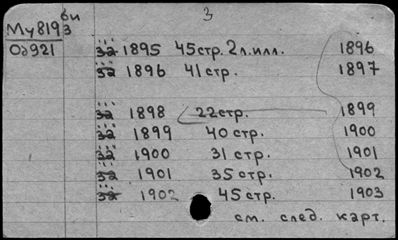 ви 3
Му8193
Од921 за 1895 45стр. 2л.илл. 1896
за 1896 41 стр. 1897
за 1898 22стр. 1899
за 1899 40 стр. 1900
за 1900 31 стр. 1901
за 1901 35 стр. 1902
за 1902 45 стр. 1903
см. след. карт.